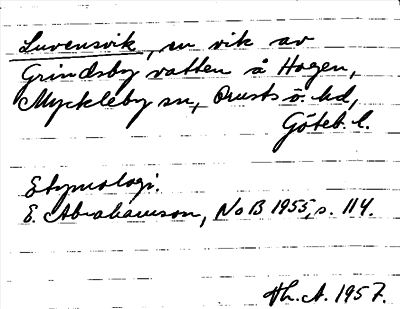 Luvensvik, en vik av
Grindsby vatten å Hogen,
Myckleby sn, Orusts ö. hd,
Göteb. l.
Etymologi.
E. Abrahamson, NoB 1955, s. 114.
Th. A. 1957.